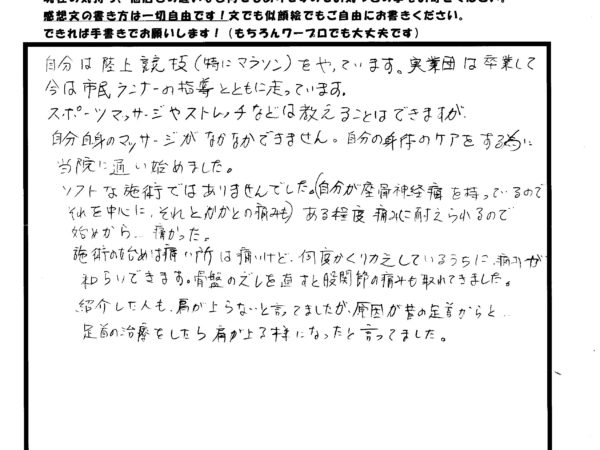 感想文の書き方は一切自由です！文でも似顔絵でもご自由にお書きください。
できれば手書きでお願いします！（もちろんワープロでも大丈夫です）
自分は陸上競技(特にマラソン)をやっています。実業団は卒業して
今は市民ランナーの指導とともに走っています。
スポーツマッサージやストレッチなどは教えることはできますが、
自分自身のマッサージがなかなかできません。自分の身体のケアをする為に
当院に通い始めました。
ソフトな施術ではありませんでした。(自分が座骨神経痛を持っているので
それを中心に、それとかかとの痛みも)ある程度痛みに耐えられるので
始めから…痛かった。
施術の始めは痛い所は痛いけど、何度かくりかえしているうちに、痛みが
和らいできます。骨盤のズレを直すと股関節の痛みも取れてきました。
紹介した人も、肩が上らないと言ってましたが、原因が昔の足首からと…
足首の治療をしたら肩が上る様になったと言ってました。